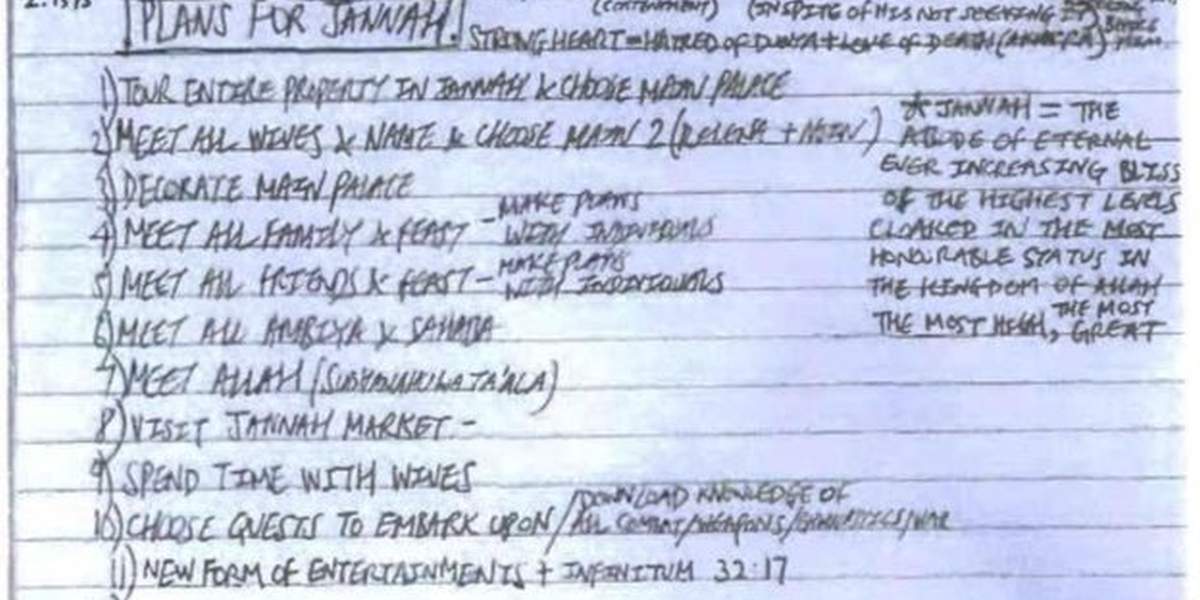 PLANS FOR JANNAH.
(CONTENTMENT) (IN SPITE OF HIS NOT SEEKING IT)
STRONG HEART = HATRED OF DUNYA + LOVE OF DEATH (AKHIRA)
1) TOUR ENTIRE PROPERTY IN JANNAH & CHOOSE MAIN PALACE
2) MEET ALL WIVES & NAME & CHOOSE MAIN 2
3) DECORATE MAIN PALACE
4) MEET ALL FAMILY & FEAST - MAKE PLANS WITH INDIVIDUALS
5) MEET ALL FRIENDS & FEAST - MAKE PLANS WITH INDIVIDUALS
6) MEET ALL AMBIYA & SAHABA
7) MEET ALLAH (SUBHANAHU WA TA'ALA)
8) VISIT JANNAH MARKET -
9) SPEND TIME WITH WIVES
10) CHOOSE QUESTS TO EMBARK UPON / DOWNLOAD KNOWLEDGE OF ALL COMBAT/WEAPONS/GYMNASTICS/WAR
11) NEW FORM OF ENTERTAINMENTS + INFINITUM 32:17
* JANNAH = THE
ABODE OF ETERNAL
EVER INCREASING BLISS
OF THE HIGHEST LEVELS
CLOAKED IN THE MOST
HONOURABLE STATUS IN
THE KINGDOM OF ALLAH
THE MOST HIGH, THE MOST GREAT